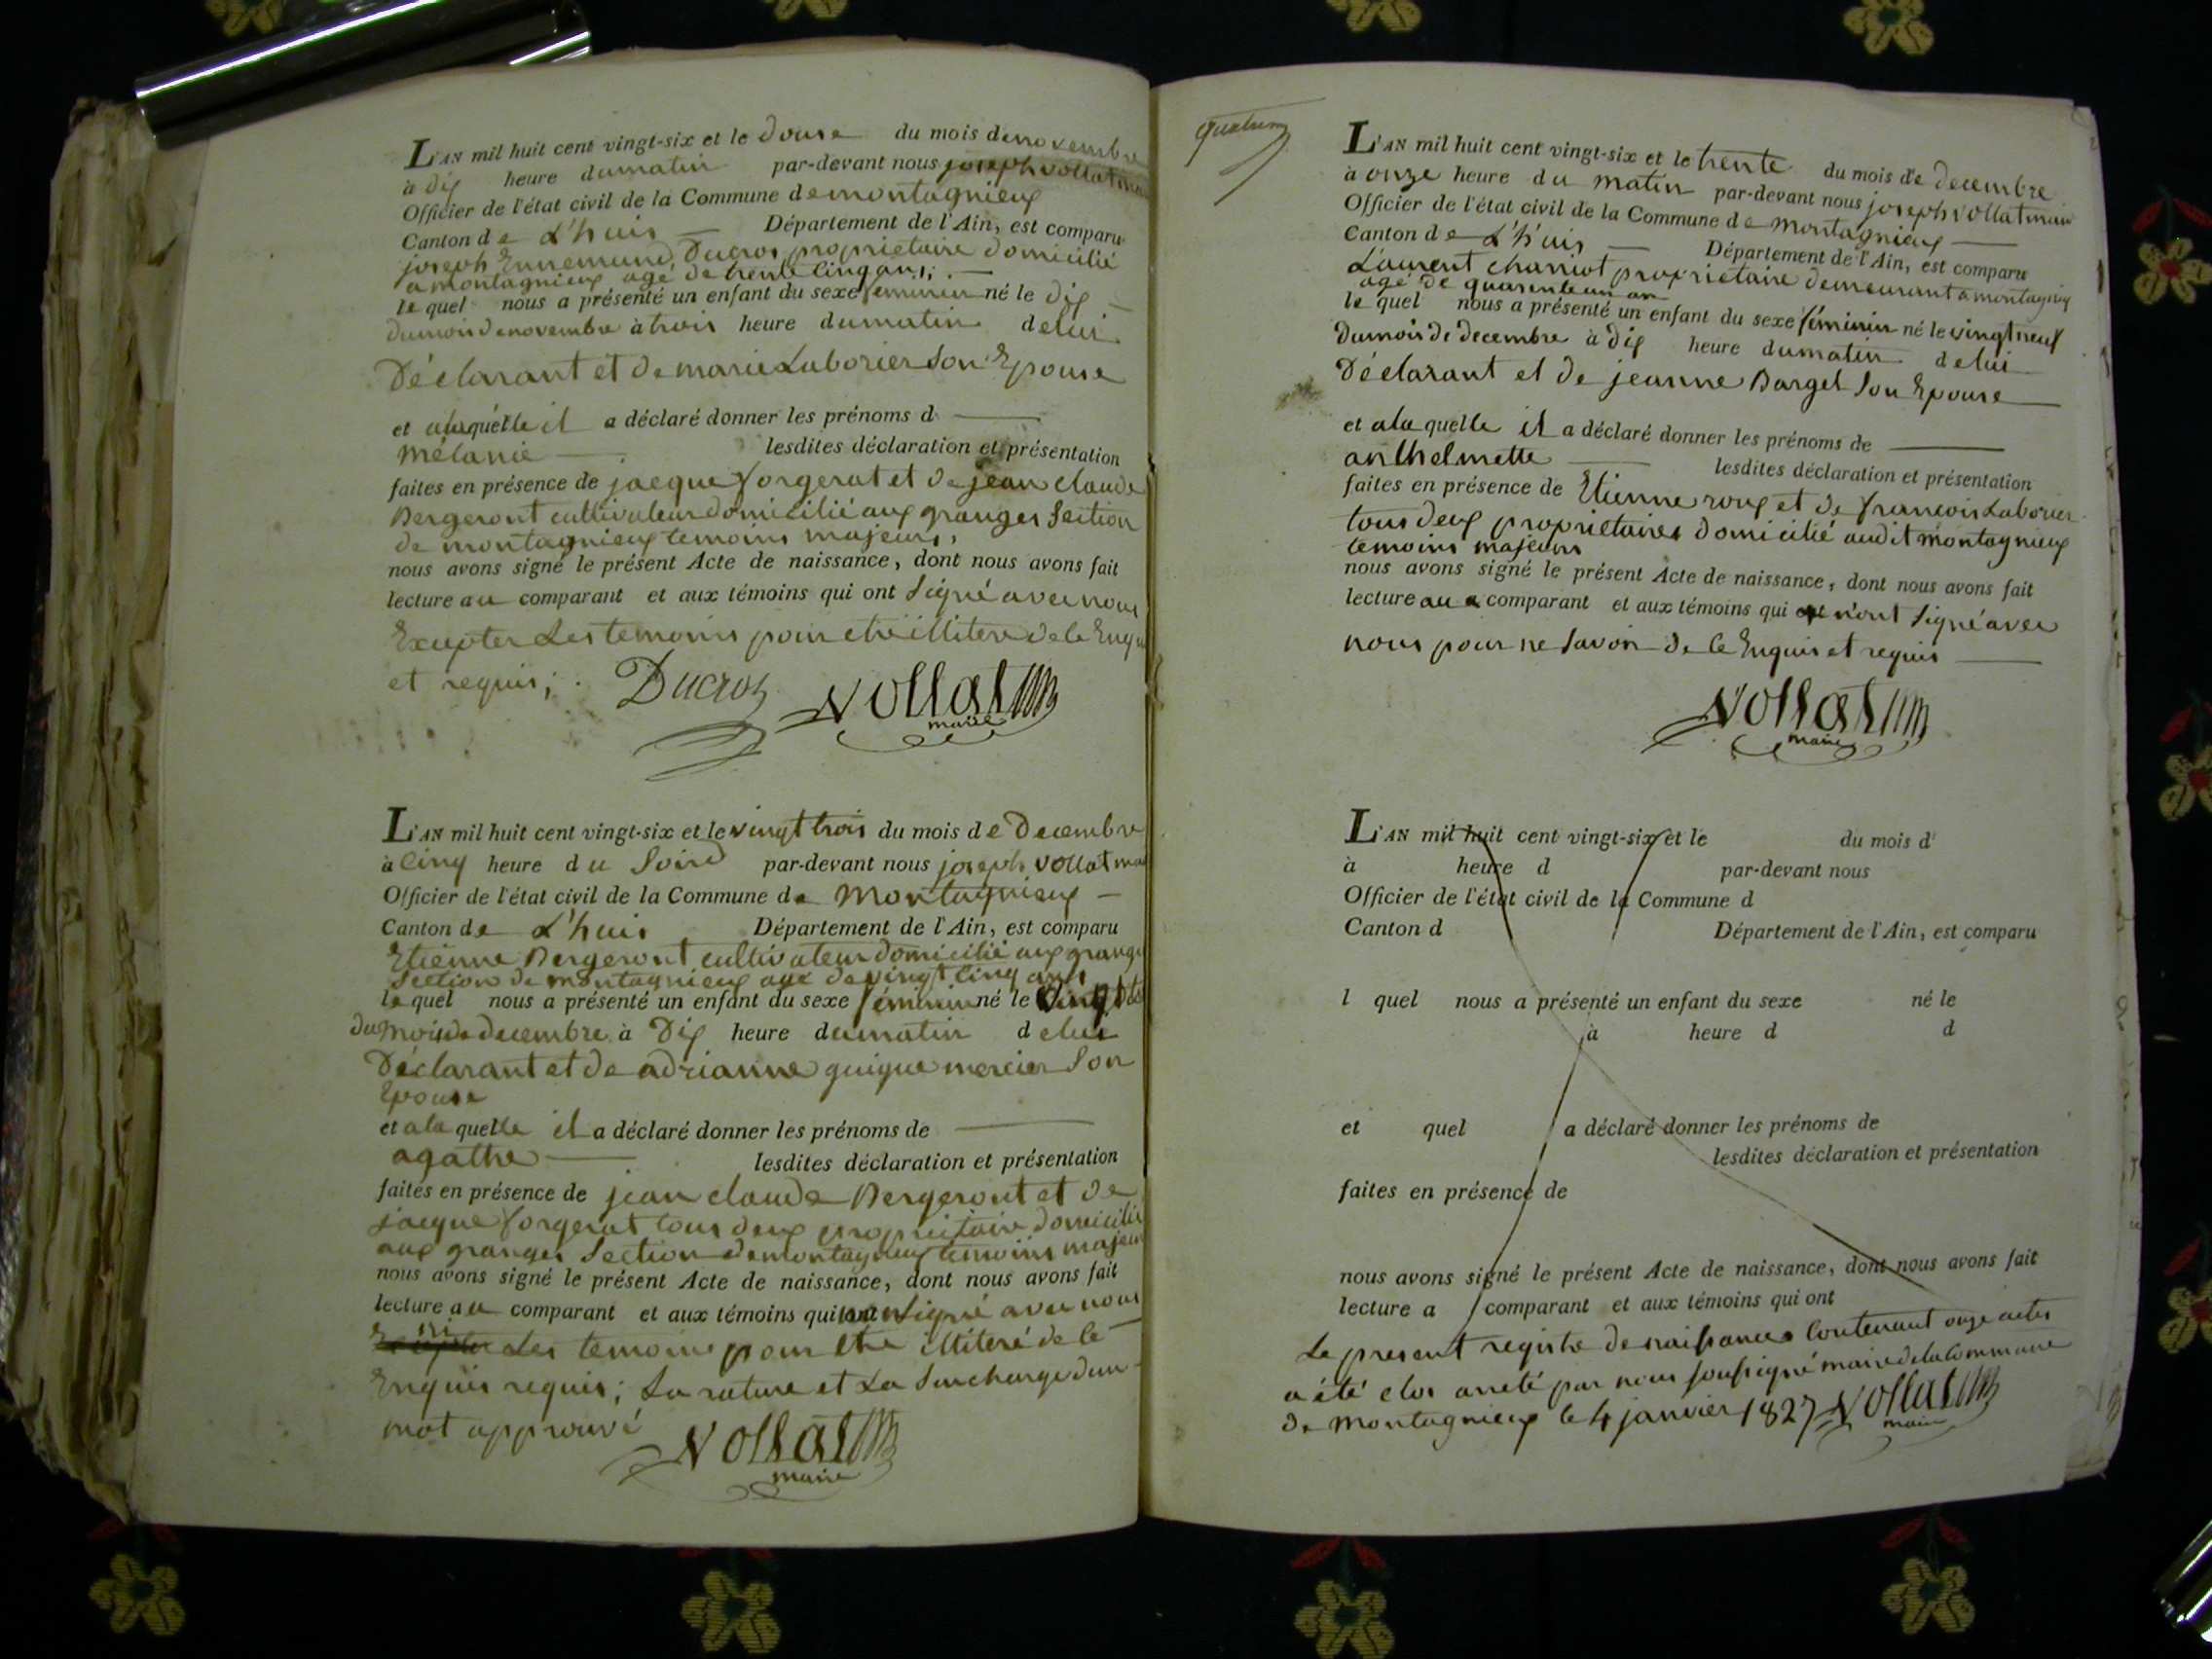 L'AN mil huit cent vingt-six et le douse du mois de novembre
à dix heure du matin par-devant nous joseph vollat
Officier de l'état civil de la Commune de montagnieux
Canton de L'huis Département de l'Ain, est comparu
joseph Ennemund Ducros propriétaire domicilié
a montagnieux agé de trente cinq ans;
le quel nous a présenté un enfant du sexe feminin né le dix
du mois de novembre à trois heure du matin de lui
Déclarant et de marie Laborier son Epouse
et a laquelle il a déclaré donner les prénoms d
mélanie lesdites déclaration et présentation
faites en présence de jacque forgerat et de jean claude
Bergeront cultivateur domicilié aux granges Section
de montagnieux temoins majeurs,
nous avons signé le présent Acte de naissance, dont nous avons fait
lecture au comparant et aux témoins qui ont signé avec nous
Excepter Les temoins pour etre illitere de le Enquis
et requis;
Ducros Vollat
maire
L'AN mil huit cent vingt-six et le vingt trois du mois de Decembre
à cinq heure du Soird par-devant nous joseph vollat
Officier de l'état civil de la Commune de Montagnieux
Canton de L'huis Département de l'Ain, est comparu
Etienne Bergeront cultivateur domicilié aux grange
Section de montagnieux age de vingt cinq ans
le quel nous a présenté un enfant du sexe féminin né le vingt
du mois de decembre à Dix heure du matin de lui
Déclarant et de adrianne guigue mercier Son
Epouse
et a la quelle il a déclaré donner les prénoms de
agathe lesdites déclaration et présentation
faites en présence de jean claude Bergeront et de
jacque forgerat tous deux propriétaire domicilié
aux granges Section de montagnieux temoins majeur
nous avons signé le présent Acte de naissance, dont nous avons fait
lecture au comparant et aux témoins qui signé avec nous
ni Les temoins pour etre illiteré de le
Enquis requis; La rature et La Surcharge d'un
mot approuvé
Vollat
maire
L'AN mil huit cent vingt-six et le trente du mois de decembre
à onze heure du matin par-devant nous joseph vollat maire
Officier de l'état civil de la Commune de montagnieux
Canton de L'huis Département de l'Ain, est comparu
Laurent charriot propriétaire demeurant a montagnieux
age de quarente un an
le quel nous a présenté un enfant du sexe féminin né le vingt neuf
du mois de decembre à dix heure du matin de lui
Déclarant et de jeanne Barget Son Epouse
et a la quelle il a déclaré donner les prénoms de
anthelmette lesdites déclaration et présentation
faites en présence de Etienne roux et de francois Laborier
tous deux propriétaires domicilié audit montagnieux
temoins majeurs
nous avons signé le présent Acte de naissance, dont nous avons fait
lecture au comparant et aux témoins qui n'ont signé avec
nous pour ne savoir de le Enquis et requis
Vollat
maire
L'AN mil huit cent vingt-six et le du mois d
à heure d par-devant nous
Officier de l'état civil de la Commune d
Canton d Département de l'Ain, est comparu
l quel nous a présenté un enfant du sexe né le
à heure d d
et quel a déclaré donner les prénoms de
lesdites déclaration et présentation
faites en présence de
nous avons signé le présent Acte de naissance, dont nous avons fait
lecture a comparant et aux témoins qui ont
Le present registre de naissances Contenant onze actes
a été clos arreté par nous soussigné maire de la Commune
de montagnieux le 4 janvier 1827 Vollat
maire